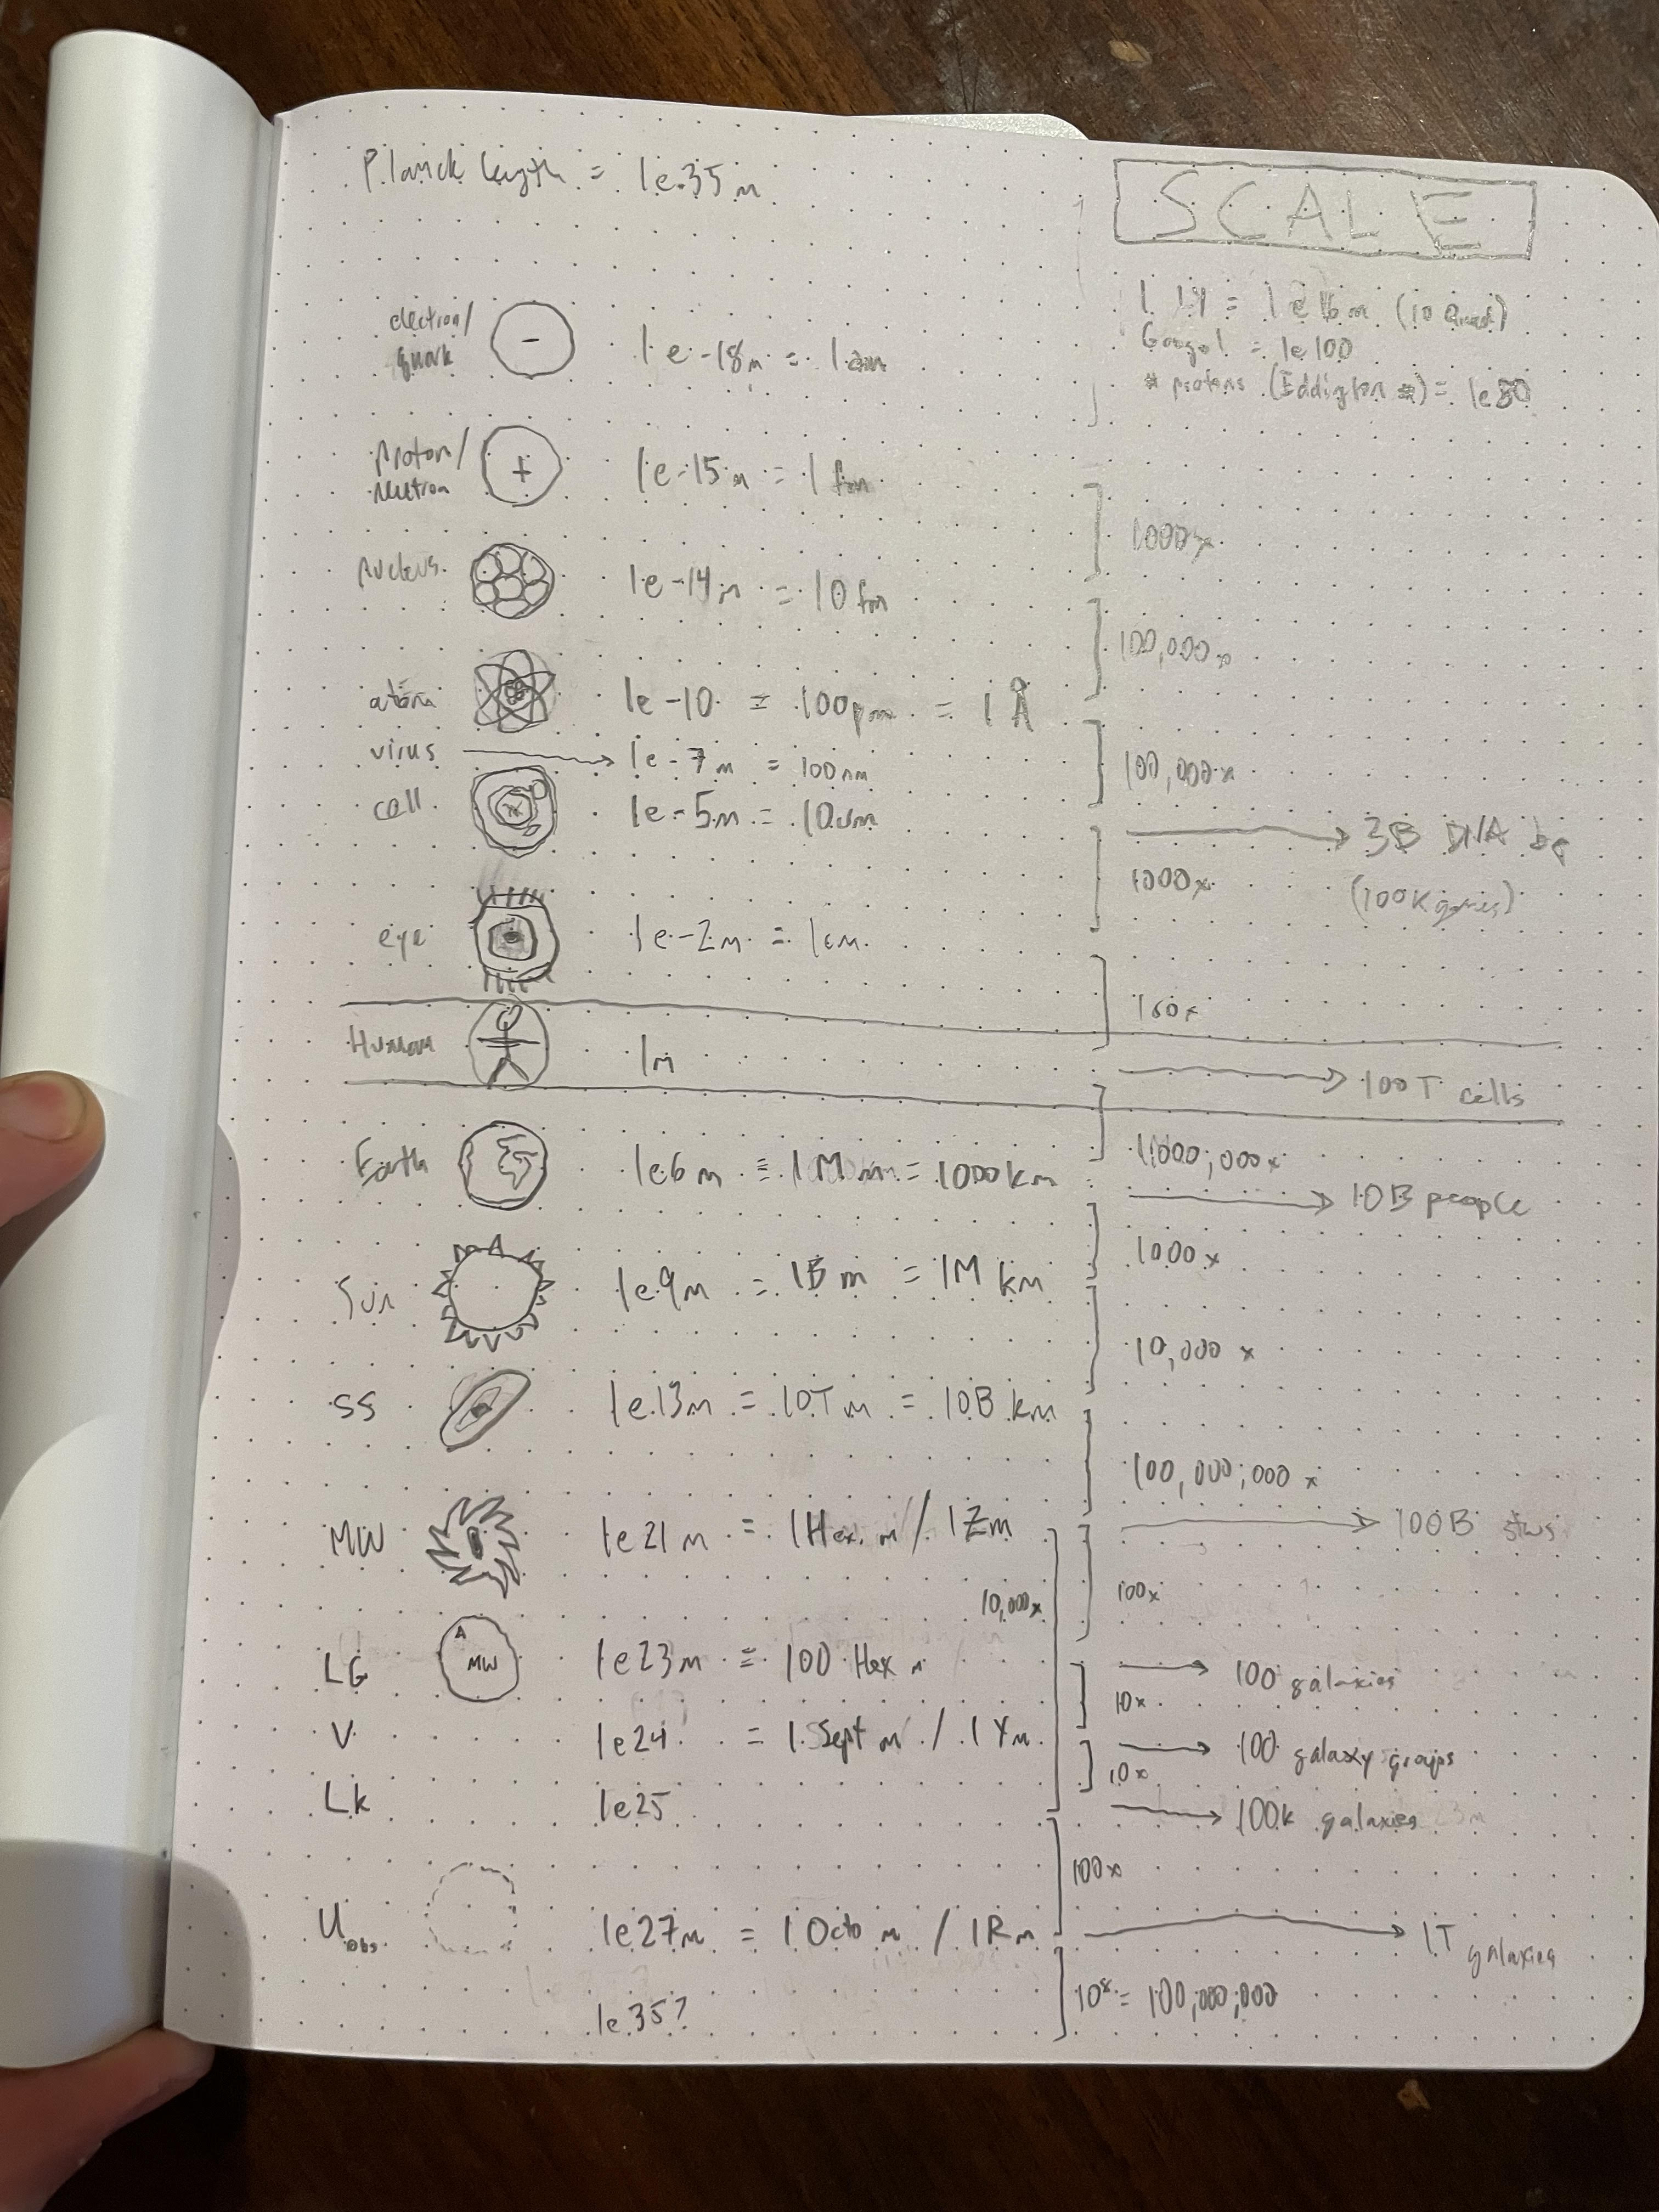 Planck length = 1e-35m
SCALE
1 LY = 1e16m (10 Quad)
Googol = 1e100
# protons (Eddington #) = 1e80
electron/
quark
-
1e-18m = 1am
proton/
neutron
+
1e-15m = 1fm
1000x
nucleus
1e-14m = 10fm
100,000x
atom
1e-10 = 100pm = 1Å
virus → 1e-7m = 100nm
100,000x
cell
1e-5m = 10um
→ 3B DNA bp
1000x
(100K genes)
eye
1e-2m = 1cm
100x
Human
1m
→ 100T cells
Earth
1e6m = 1Mm = 1000km
1,000,000x
→ 10B people
1000x
Sun
1e9m = 1Bm = 1M km
10,000x
SS
1e13m = 10Tm = 10B km
100,000,000x
MW
1e21m = 1Hex m / 1Zm
→ 100B stars
10,000x
100x
A
MW
LG
1e23m = 100 Hex m
→ 100 galaxies
10x
V
1e24 = 1 Sept m / 1Ym
→ 100 galaxy groups
10x
Lk
1e25
→ 100k galaxies
100x
U obs
1e27m = 1 Octo m / 1Rm
→ 1T galaxies
1e35?
10⁸ = 100,000,000